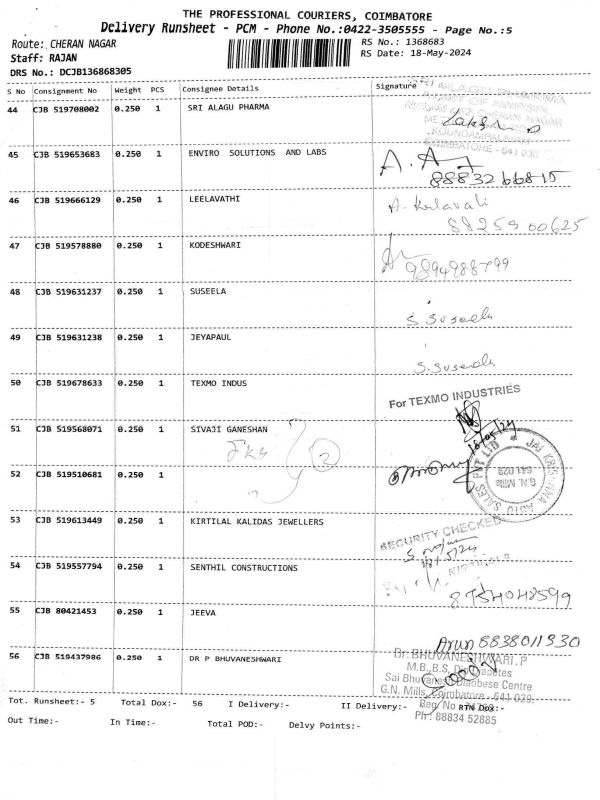 THE PROFESSIONAL COURIERS, COIMBATORE
Delivery Runsheet - PCM - Phone No.:0422-3505555 - Page No.:5
Route: CHERAN NAGAR
RS No.: 1368683
Staff: RAJAN
RS Date: 18-May-2024
DRS No.: DCJB136868305
S No Consignment No Weight PCS Consignee Details Signature
44 CJB 519708002 0.250 1 SRI ALAGU PHARMA
COIMBATORE - 641 030
45 CJB 519653683 0.250 1 ENVIRO SOLUTIONS AND LABS
8883266815
46 CJB 519666129 0.250 1 LEELAVATHI
8825900625
47 CJB 519578880 0.250 1 KODESHWARI
9894988799
48 CJB 519631237 0.250 1 SUSEELA
S. Suseela
49 CJB 519631238 0.250 1 JEYAPAUL
S. Suseela
50 CJB 519678633 0.250 1 TEXMO INDUS
For TEXMO INDUSTRIES
18/05/24
51 CJB 519568071 0.250 1 SIVAJI GANESHAN
2
JAI KRISHNA AUTO SALES PVT LTD
G.N. Mills
641 029
52 CJB 519510681 0.250 1
53 CJB 519613449 0.250 1 KIRTILAL KALIDAS JEWELLERS
SECURITY CHECKED
18/5/24
54 CJB 519557794 0.250 1 SENTHIL CONSTRUCTIONS
55 CJB 80421453 0.250 1 JEEVA
Arun 8838011330
56 CJB 519437986 0.250 1 DR P BHUVANESHWARI
Dr. BHUVANESHWARI. P
M.B.,B.S, Diabetes
Sai Bhuvanes Diaobese Centre
G.N. Mills, Coimbatore - 641 029.
Reg. No
Ph : 88834 52885
Tot. Runsheet:- 5 Total Dox:- 56 I Delivery:- II Delivery:- RTN Dox:-
Out Time:- In Time:- Total POD:- Delvy Points:-